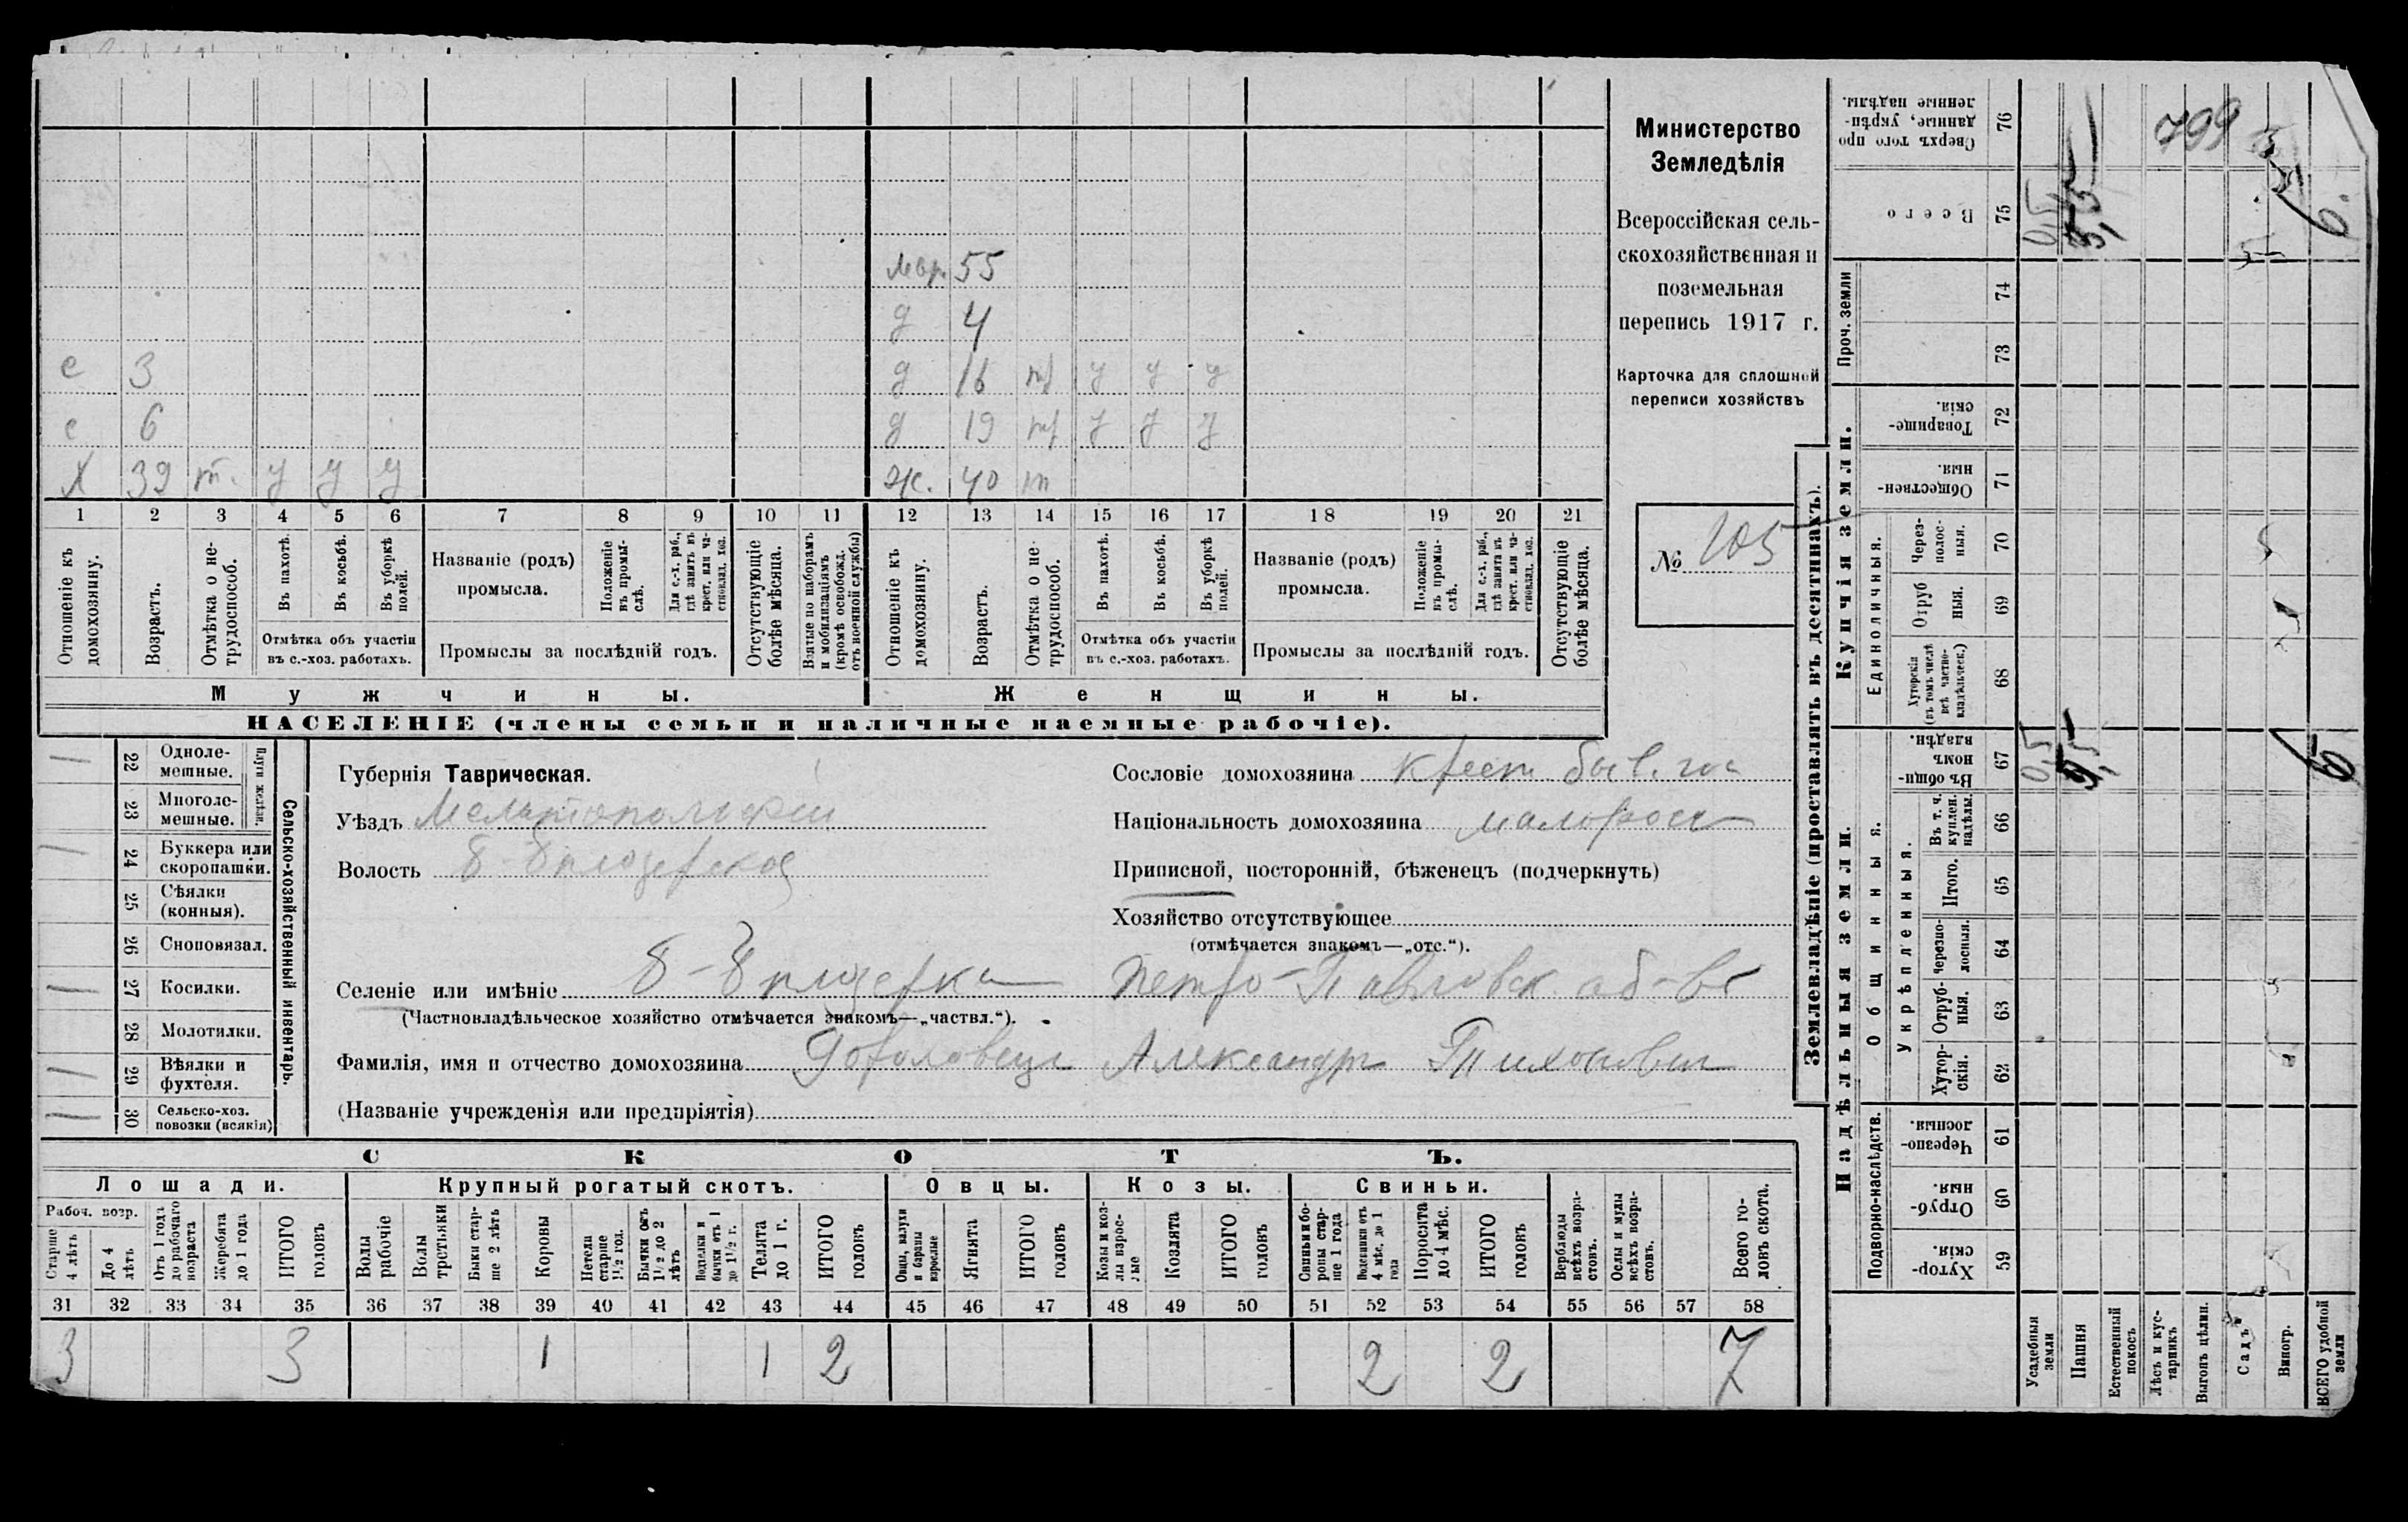 Министерство
Земледѣлія
Всероссійская сель-
скохозяйственная и
поземельная
перепись 1917 г.
Карточка для сплошной
переписи хозяйствъ
№ 105
мар. 55
д 4
с 3 д 16 тр у у у
с 6 д 19 тр у у у
Х 39 т. у у у ж. 40 т
1 2 3 4 5 6 7 8 9 10 11 12 13 14 15 16 17 18 19 20 21
Отношеніе къ домохозяину.
Возрастъ.
Отмѣтка о не-трудоспособ.
Въ пахотѣ.
Въ косьбѣ.
Въ уборкѣ полей.
Отмѣтка объ участіи
въ с.-хоз. работахъ.
Названіе (родъ)
промысла.
Положеніе въ промы-слѣ.
Для с.-х. раб., гдѣ занятъ въ крест. или ча-стновлад. хоз.
Промыслы за послѣдній годъ.
Отсутствующіе болѣе мѣсяца.
Взятые по наборамъ и мобилизаціямъ (кромѣ освобожд. отъ военной службы)
Отношеніе къ домохозяину.
Возрастъ.
Отмѣтка о не-трудоспособ.
Въ пахотѣ.
Въ косьбѣ.
Въ уборкѣ полей.
Отмѣтка объ участіи
въ с.-хоз. работахъ.
Названіе (родъ)
промысла.
Положеніе въ промы-слѣ.
Для с.-х. раб., гдѣ занята въ крест. или ча-стновлад. хоз.
Промыслы за послѣдній годъ.
Отсутствующіе болѣе мѣсяца.
Мужчины. Женщины.
НАСЕЛЕНІЕ (члены семьи и наличные наемные рабочіе).
Сельско-хозяйственный инвентарь.
Плуги желѣзн.
22 Одноле-мешные.
23 Многоле-мешные.
24 Буккера или скоропашки.
25 Сѣялки (конныя).
26 Сноповязал.
27 Косилки.
28 Молотилки.
29 Вѣялки и фухтеля.
30 Сельско-хоз. повозки (всякія)
Губернія Таврическая.
Уѣздъ Мелитопольскій
Волость
Селеніе или имѣніе Петро-Павловск. об-во
(Частновладѣльческое хозяйство отмѣчается знакомъ—„частвл.“).
Фамилія, имя и отчество домохозяина Александръ Тихонович
(Названіе учрежденія или предпріятія)
Сословіе домохозяина крест. быв. гос
Національность домохозяина малоросс
Приписной, посторонній, бѣженецъ (подчеркнуть)
Хозяйство отсутствующее
(отмѣчается знакомъ—„отс.“).
СКОТЪ.
Лошади. Крупный рогатый скотъ. Овцы. Козы. Свиньи.
Рабоч. возр.
Старше 4 лѣтъ
До 4 лѣтъ
Отъ 1 года до рабочаго возраста
Жеребята до 1 года
ИТОГО головъ
Волы рабочіе
Волы третьяки
Быки стар-ше 2 лѣтъ
Коровы
Нетели старше 1½ год.
Бычки отъ 1½ до 2 лѣтъ
Подтелки и бычки отъ 1 до 1½ г.
Телята до 1 г.
ИТОГО головъ
Овцы, валухи и бараны взрослые
Ягнята
ИТОГО головъ
Козы и коз-лы взрос-лые
Козлята
ИТОГО головъ
Свиньи и бо-ровы стар-ше 1 года
Подсвинки отъ 4 мѣс. до 1 года
Поросята до 4 мѣс.
ИТОГО головъ
Верблюды всѣхъ возра-стовъ.
Ослы и мулы всѣхъ возра-стовъ.
Всего го-ловъ скота.
31 32 33 34 35 36 37 38 39 40 41 42 43 44 45 46 47 48 49 50 51 52 53 54 55 56 57 58
3 3 1 1 2 2 2 7
Землевладѣніе (проставлять въ десятинахъ).
Надѣльныя земли.
Купчія земли.
Проч. земли
Подворно-наслѣдств.
Общинныя.
Укрѣпленныя.
Единоличныя.
Хутор-скія. 59
Отруб-ныя. 60
Черезпо-лосныя. 61
Хутор-скія. 62
Отруб-ныя. 63
Черезпо-лосныя. 64
Итого. 65
Въ т. ч. куплен. надѣлы. 66
Въ общи-номъ владѣн. 67
Хуторскія (въ томъ числѣ всѣ частно-владѣльческ.) 68
Отруб ныя. 69
Через-полос-ныя. 70
Обществен-ныя. 71
Товарище-скія. 72
73
74
Всего 75
Сверхъ того про данные, укрѣп-ленные надѣлы. 76
Усадебныя земли
Пашня
Естественный покосъ
Лѣсъ и кус-тарникъ
Выгонъ цѣлин.
Садъ
Виногр.
ВСЕГО удобной земли
0,5
5,5
6
0,5
5,5
6.
799